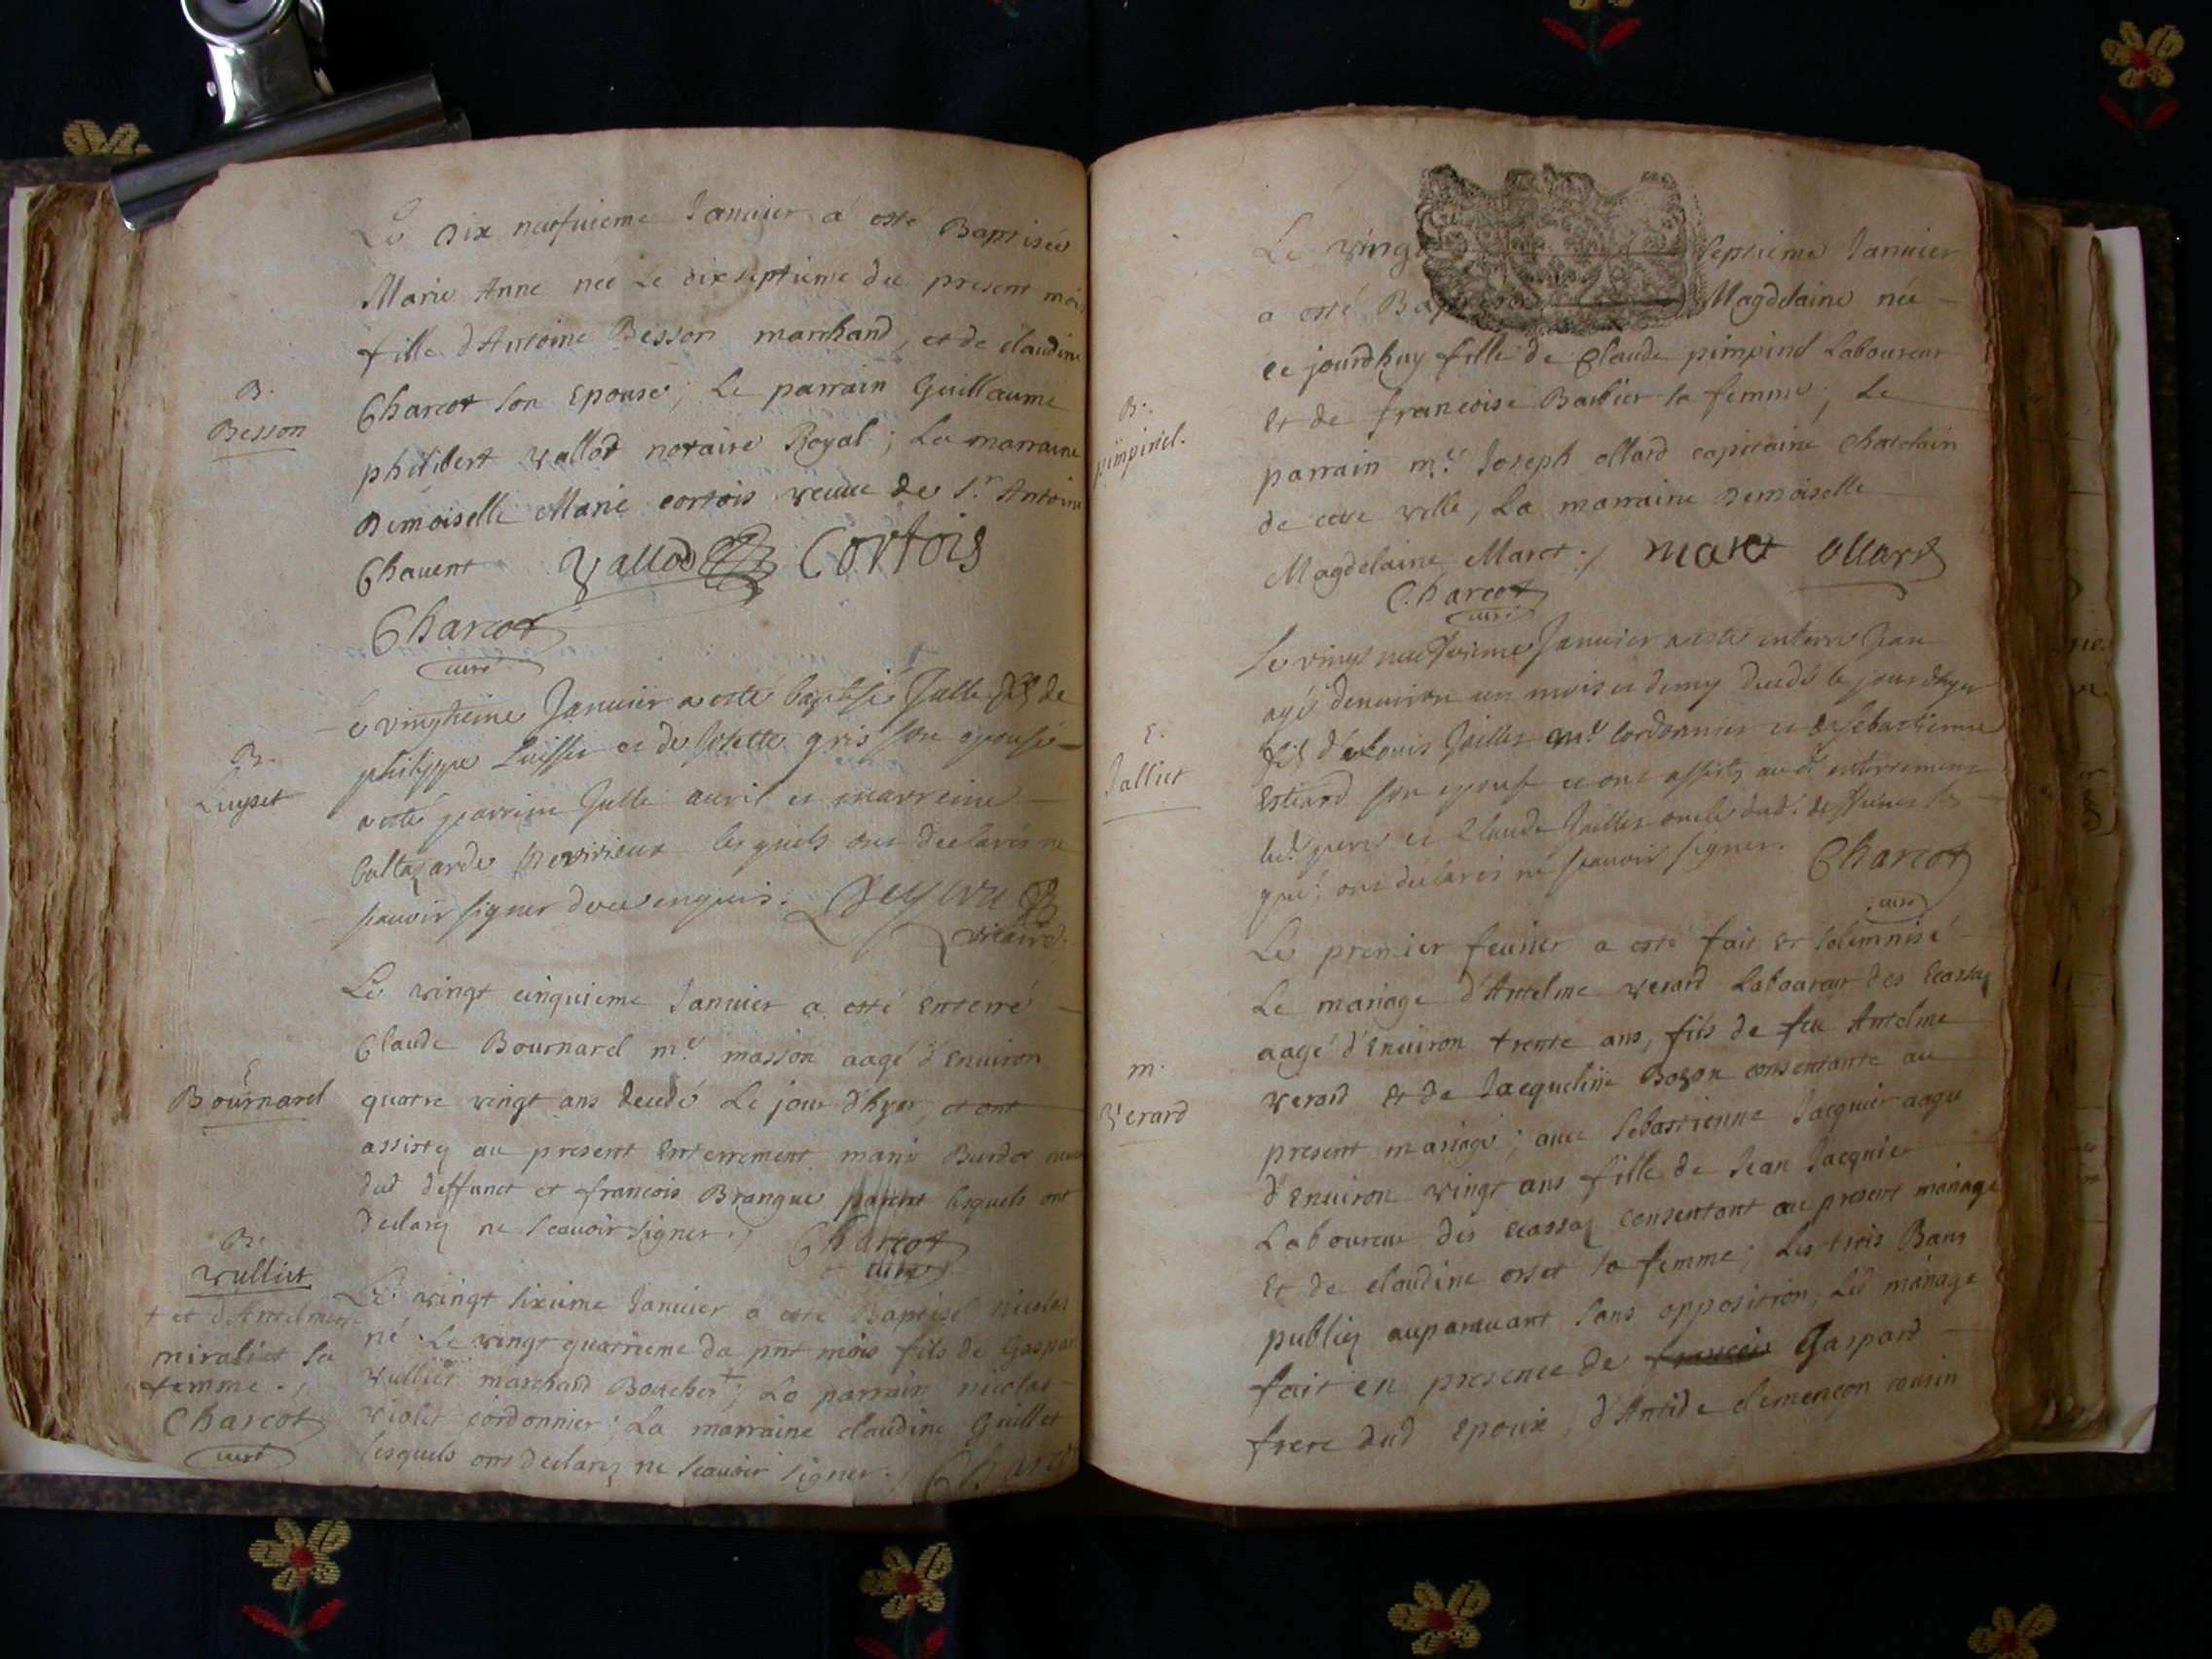 Le dix neufuieme Januier a esté Baptisée
Marie Anne née Le dixseptieme du present mois
fille d'Antoine Besson marchand, et de claudine
B.
Besson
Charcot son Epouse; Le parrain Guillaume
philibert vallod notaire Royal; La marraine
Demoiselle Marie cortois veuue de Sr Antoine
Chauent Vallod Cortois
Charcot
curé
Le vingtieme Januier a esté baptisé Julle fils de
B.
Luyset
philippe Luisset et de gris son epouse
a esté parrain Julle auril et marreine
baltazarde lesquels ont declarés ne
scauoir signer de ce enquis.
vicaire
Le vingt cinquieme Januier a esté Enterré
Claude Bournarel me masson aagé d'Enuiron
E
Bournarel
quatre vingt ans decedé Le jour d'hyer, et ont
assistez au present Enterrement marin Burdot
dud deffunct et francois Brangue parent lesquels ont
declarez ne scauoir signer.
Charcot
curé
B.
vulliet
Le vingt sixieme Januier a esté Baptisé nicolas
né Le vingt quatrieme du pnt mois fils de Gaspar
vulliet marchand Boucher +; Le parrain nicolas
violet cordonnier; La marraine claudine Guillet
lesquels ont declarez ne scauoir signer. Charcot
+ et d'Antelmette
miraliet sa
femme.
Charcot
curé
Le vingt septieme Januier
a esté Magdelaine née
ce jourdhuy fille de Claude pimpinel Laboureur
B.
pimpinel.
Et de francoise Barbier sa femme; Le
parrain me Joseph ollard capitaine Chatelain
de cette ville, La marraine Demoiselle
Magdelaine Maret. maret ollard
Charcot
curé
Le vingt neufuieme Januier a esté enterré Jean
agé denuiron un mois et demy decedé le jour dhyer
E.
Jalliet
fils de Louis Jaillet me Cordonnier et de Sebastienne
Estiard son epouse et ont assistés aud enterrement
led. pere et Claude Jaillet oncle dud. deffunct
que; ont declarés ne scauoir signer. Charcot
curé
Le premier feurier a esté fait et solemnisé
Le mariage d'Antelme verard Laboureur des Ecassaz
aagé d'Enuiron trente ans, fils de feu Antelme
m.
Verard
verard et de Jacqueline Bozon consentante au
present mariage; auec Sebastienne Jacquier aagée
d'Enuiron vingt ans fille de Jean Jacquier
Laboureur des ecassaz consentant au present mariage
Et de claudine orset sa femme; Les trois Bans
publiez auparauant sans opposition, Led mariage
fait en presence de francois Gaspard
frere dud Epoux, d'Antide clemençon cousin